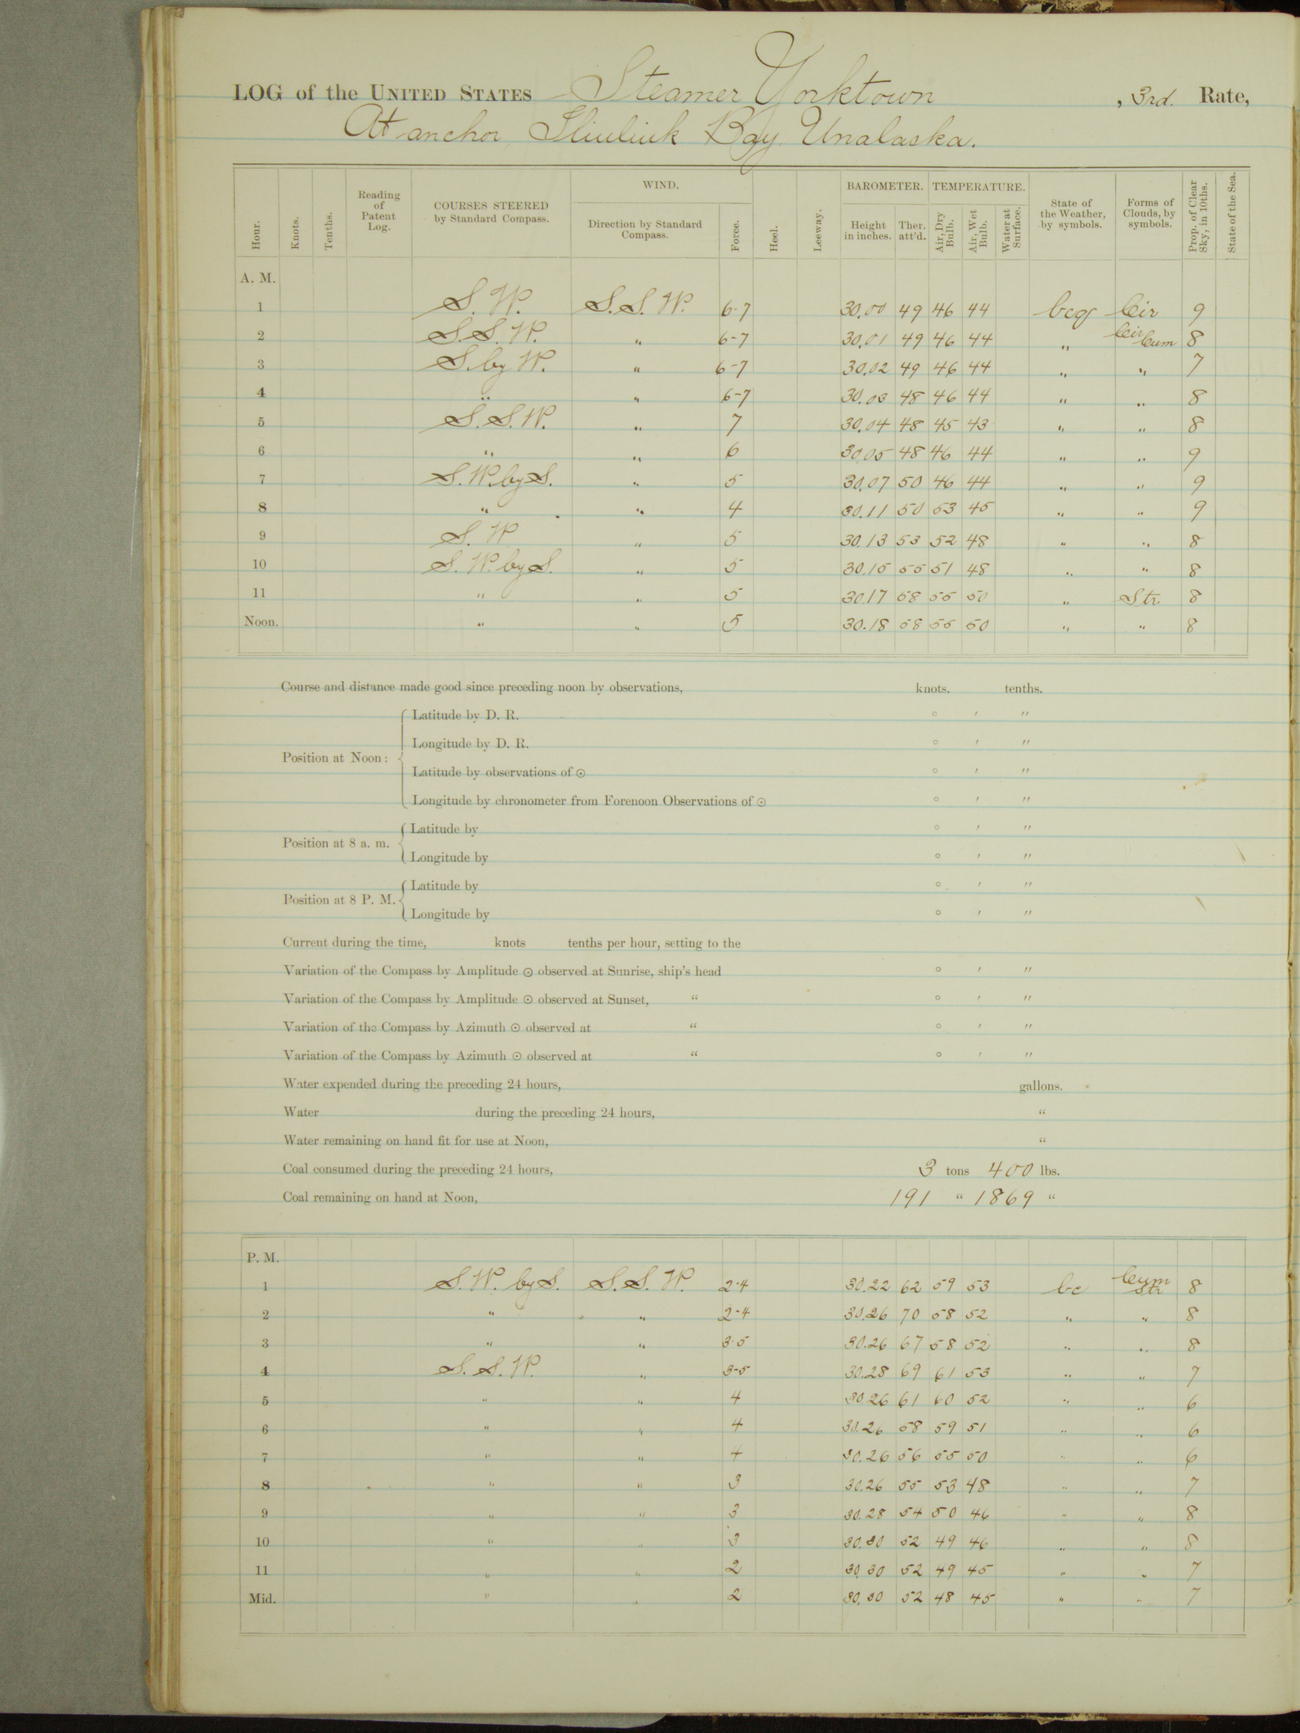 LOG of the UNITED STATES Steamer Yorktown, 3rd. Rate,
At anchor, Iliuliuk Bay, Unalaska.
Hour. Knots. Tenths. Reading of Patent Log. COURSES STEERED by Standard Compass. WIND. Direction by Standard Compass. Force. Heel. Leeway. BAROMETER. Height in inches. Ther. att'd. TEMPERATURE. Air, Dry Bulb. Air, Wet Bulb. Water at Surface. State of the Weather, by symbols. Forms of Clouds, by symbols. Prop. of Clear Sky, in 10ths. State of the Sea.
A. M.
1 S. W. S. S. W. 6-7 30.00 49 46 44 bcq Cir 9
2 S. S. W. " 6-7 30.01 49 46 44 " Cir Cum 8
3 S. by W. " 6-7 30.02 49 46 44 " " 7
4 " " 6-7 30.03 48 46 44 " " 8
5 S. S. W. " 7 30.04 48 45 43 " " 8
6 " " 6 30.05 48 46 44 " " 9
7 S. W. by S. " 5 30.07 50 46 44 " " 9
8 " " 4 30.11 50 53 45 " " 9
9 S. W. " 5 30.13 53 52 48 " " 8
10 S. W. by S. " 5 30.15 55 51 48 " " 8
11 " " 5 30.17 58 55 50 " Str 8
Noon. " " 5 30.18 58 55 50 " " 8
Course and distance made good since preceding noon by observations, knots. tenths.
Position at Noon: Latitude by D. R. ° ′ ″
Longitude by D. R. ° ′ ″
Latitude by observations of ☉ ° ′ ″
Longitude by chronometer from Forenoon Observations of ☉ ° ′ ″
Position at 8 a. m. Latitude by ° ′ ″
Longitude by ° ′ ″
Position at 8 P. M. Latitude by ° ′ ″
Longitude by ° ′ ″
Current during the time, knots tenths per hour, setting to the
Variation of the Compass by Amplitude ☉ observed at Sunrise, ship's head ° ′ ″
Variation of the Compass by Amplitude ☉ observed at Sunset, " ° ′ ″
Variation of the Compass by Azimuth ☉ observed at " ° ′ ″
Variation of the Compass by Azimuth ☉ observed at " ° ′ ″
Water expended during the preceding 24 hours, gallons.
Water during the preceding 24 hours, "
Water remaining on hand fit for use at Noon, "
Coal consumed during the preceding 24 hours, 3 tons 400 lbs.
Coal remaining on hand at Noon, 191 " 1869 "
P. M.
1 S. W. by S. S. S. W. 2-4 30.22 62 59 53 bc Cum Str 8
2 " " 2-4 30.26 70 58 52 " " 8
3 " " 3-5 30.26 67 58 52 " " 8
4 S. S. W. " 3-5 30.28 69 61 53 " " 7
5 " " 4 30.26 61 60 52 " " 6
6 " " 4 30.26 58 59 51 " " 6
7 " " 4 30.26 56 55 50 " " 6
8 " " 3 30.26 55 53 48 " " 7
9 " " 3 30.28 54 50 46 " " 8
10 " " 3 30.30 52 49 46 " " 8
11 " " 2 30.30 52 49 45 " " 7
Mid. " " 2 30.30 52 48 45 " " 7